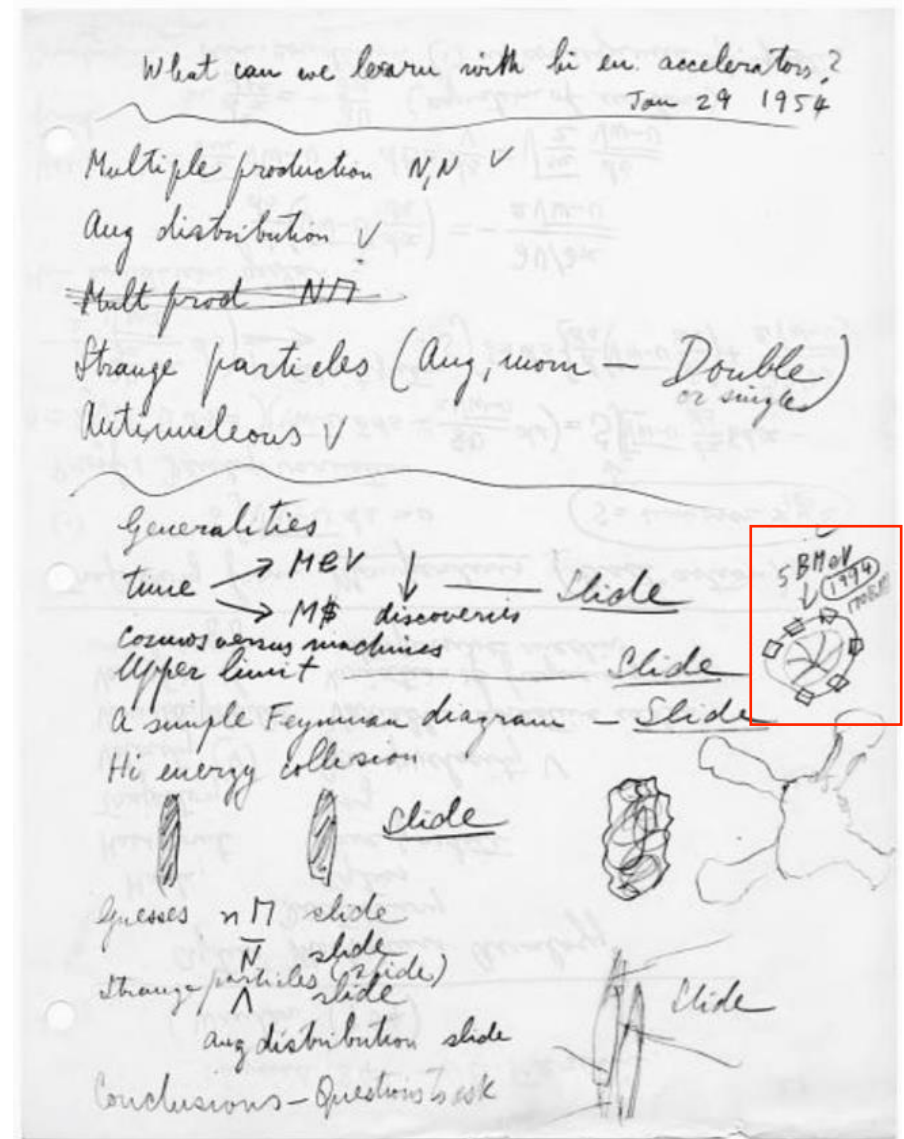 What can we learn with hi en. accelerators?
Jan 29 1954
Multiple production N,N V
Ang distribution V
Mult prod NΠ
Strange particles (Ang, mom — Double
or single)
Antinucleons V
Generalities
time → MeV
→ M$ discoveries — Slide
Cosmos versus machines
Upper limit — Slide
5 BMeV
1994
A simple Feynman diagram — Slide
Hi energy collision
Slide
Guesses n Π slide
N̅ slide
Strange particles (slide)
Λ slide
Slide
ang distribution slide
Conclusions — Questions to ask